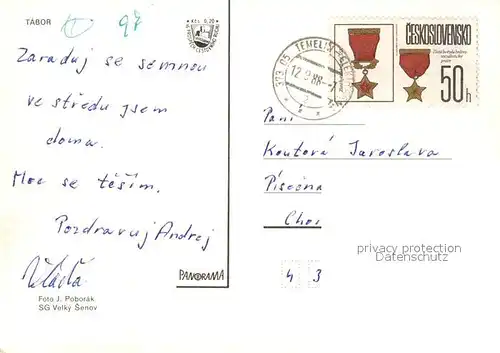 TÁBOR
97
Kčs 0,20
Zaraduj se semnou
ve středu jsem
doma.
Moc se těším.
Pozdravuj Andrej
Vláďa
Foto J. Poborák
SG Velký Šenov
PANORAMA
373 05 TEMELÍN
12.9.88-7
ČESKOSLOVENSKO
50h
Paní
Koutová Jaroslava
Písečná
43
privacy protection
Datenschutz